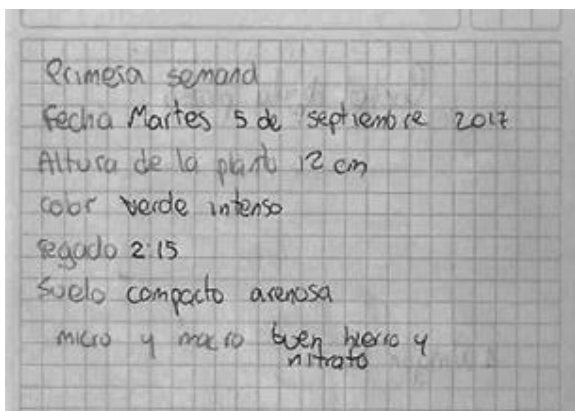 Primera semana
Fecha Martes 5 de septiembre 2017
Altura de la plant 12 cm
color verde intenso
regado 2:15
Suelo compacto arenosa
micro y macro buen hierro y
nitrato